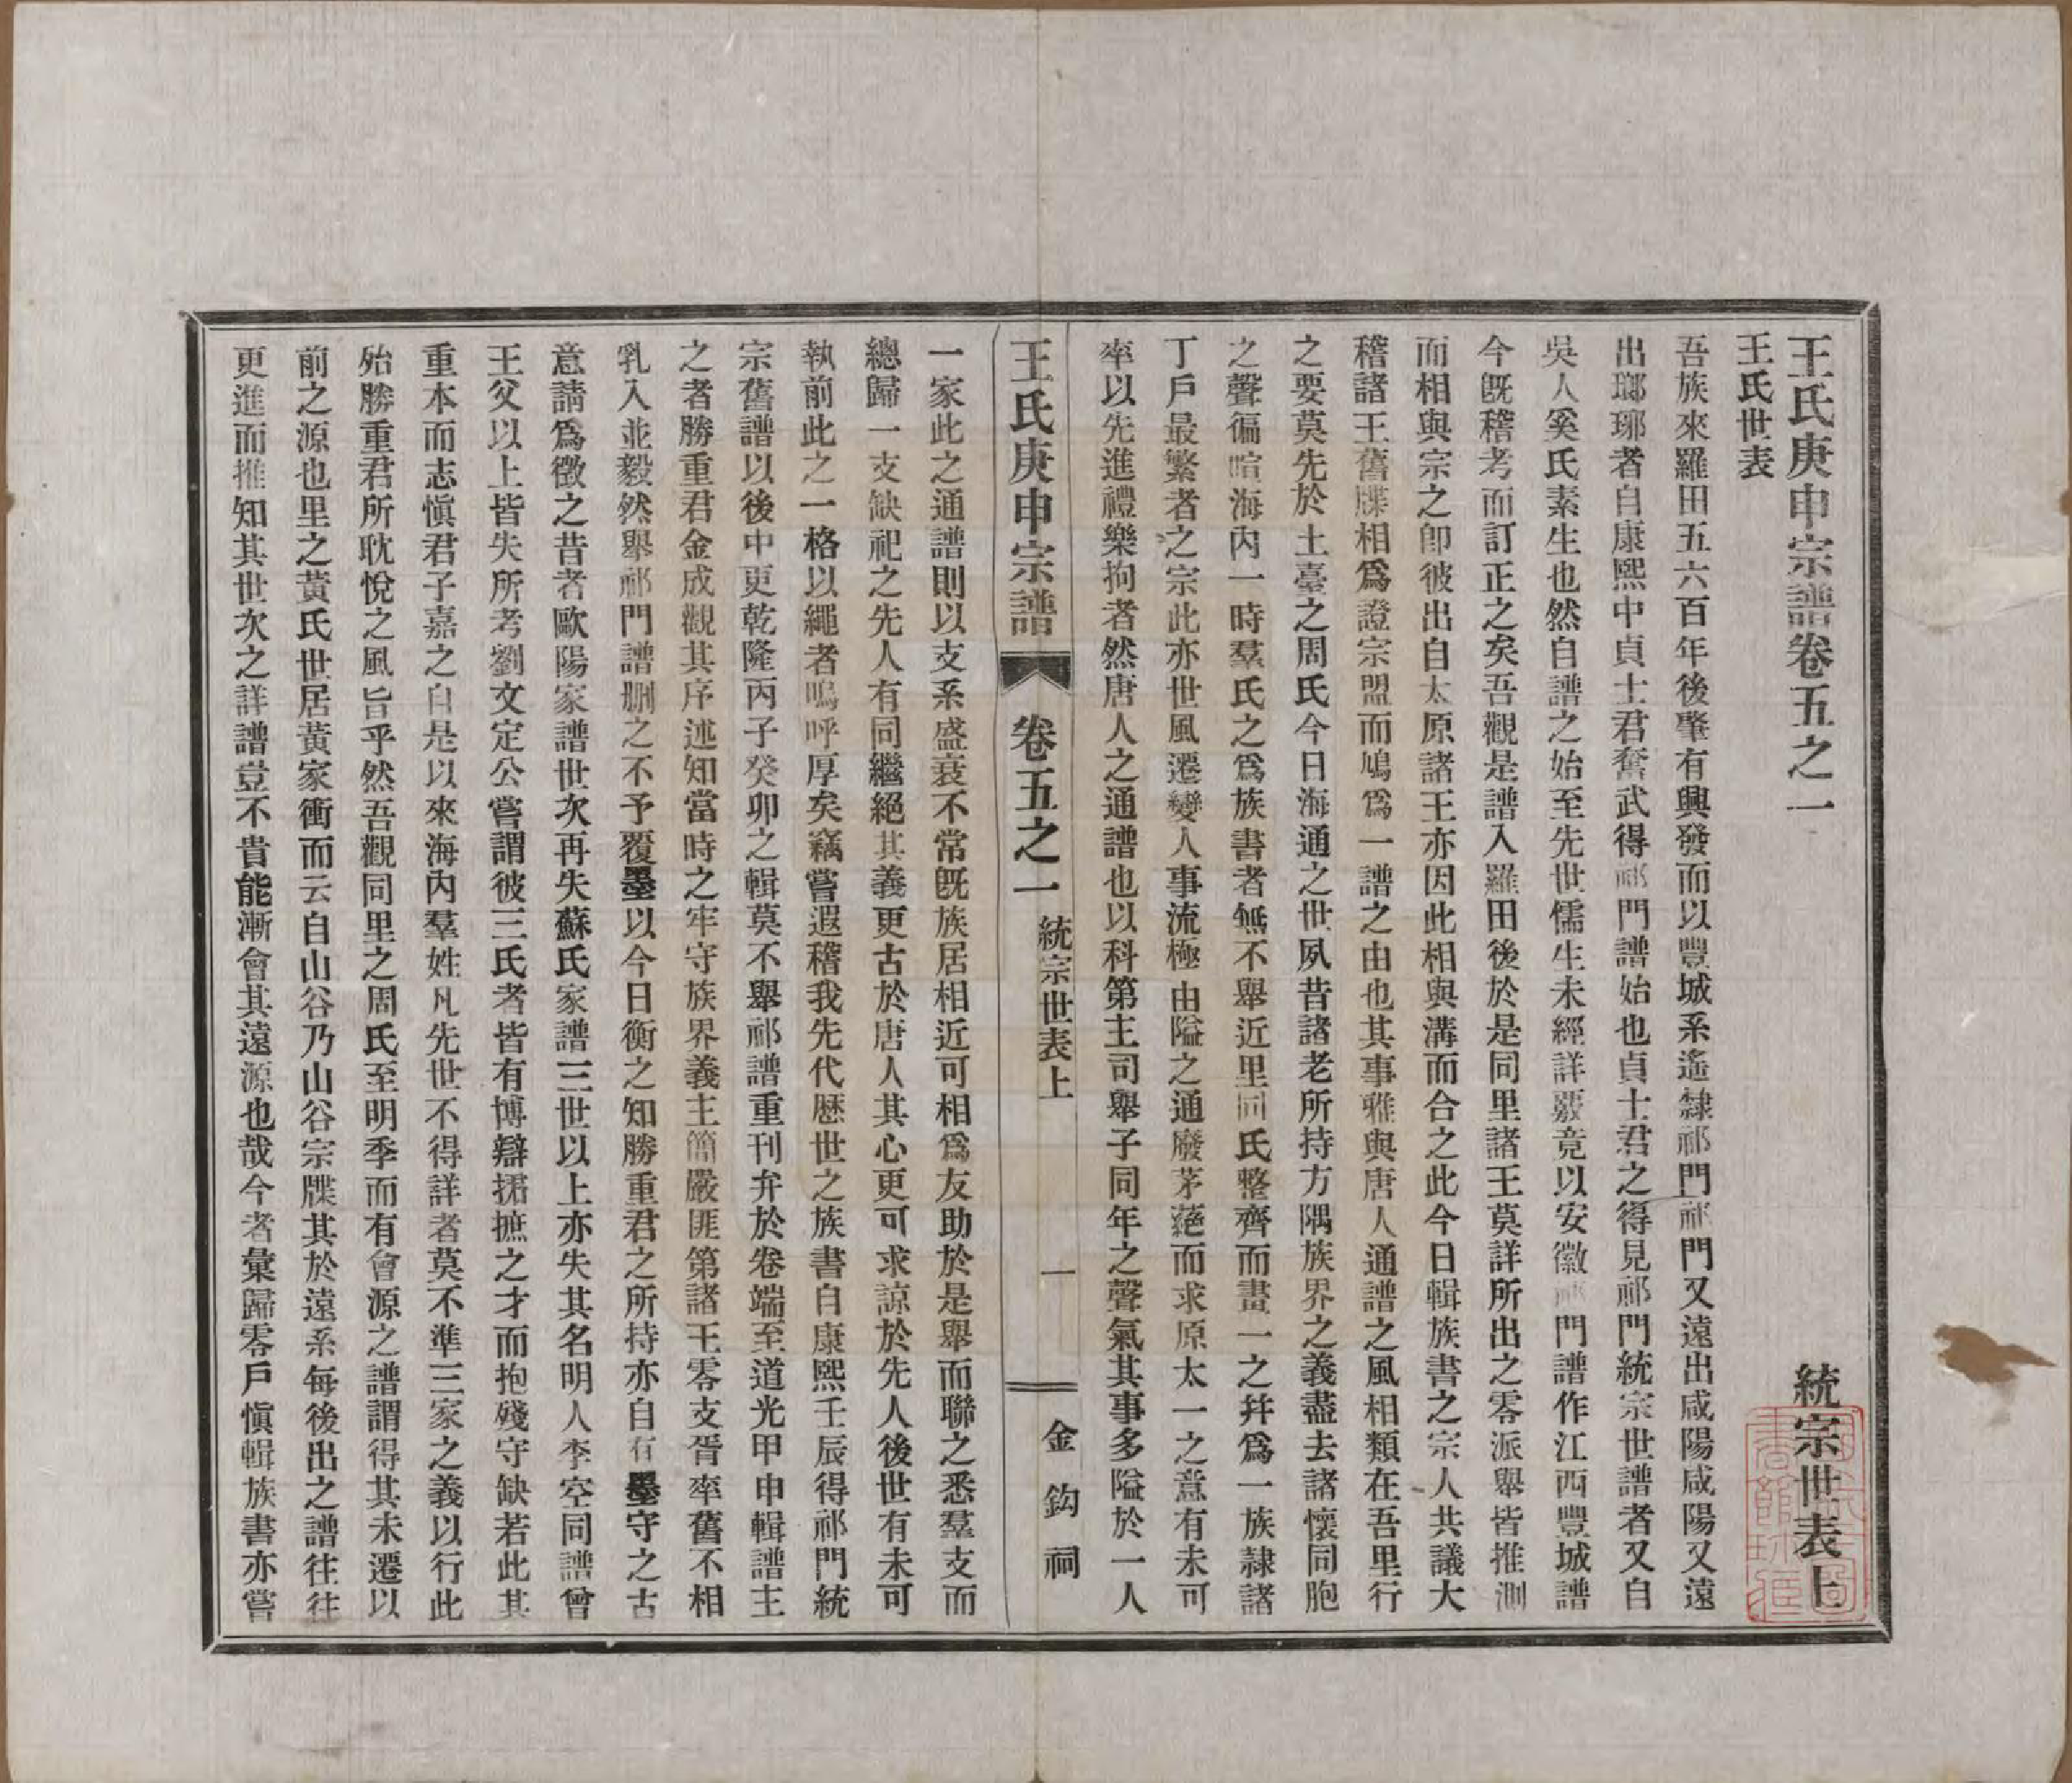 王氏庚申宗譜卷五之一　統宗世表上
王氏世表
吾族來羅田五六百年後肇有興發而以豐城系遙隸祁門祁門又遠出咸陽咸陽又遠
出瑯琊者自康熙中貞士君奮武得祁門譜始也貞士君之得見祁門統宗世譜者又自
吳人奚氏素生也然自譜之始至先世儒生未經詳覈竟以安徽祁門譜作江西豐城譜
今既稽考而訂正之矣吾觀是譜入羅田後於是同里諸王莫詳所出之零派舉皆推測
而相與宗之卽彼出自太原諸王亦因此相與溝而合之此今日輯族書之宗人共議大
稽諸王舊牒相爲證宗盟而鳩爲一譜之由也其事雅與唐人通譜之風相類在吾里行
之要莫先於土臺之周氏今日海通之世夙昔諸老所持方隅族界之義盡去諸懷同胞
之聲徧喧海內一時羣氏之爲族書者無不舉近里同氏整齊而畫一之幷爲一族隷諸
丁戶最繁者之宗此亦世風遷變人事流極由隘之通廢茅蕝而求原太一之意有未可
率以先進禮樂拘者然唐人之通譜也以科第主司舉子同年之聲氣其事多隘於一人
王氏庚申宗譜　卷五之一　統宗世表上　一　金鈎祠
一家此之通譜則以支系盛衰不常既族居相近可相爲友助於是舉而聯之悉羣支而
總歸一支缺祀之先人有同繼絕其義更古於唐人其心更可求諒於先人後世有未可
執前此之一格以繩者嗚呼厚矣竊嘗遐稽我先代歷世之族書自康熙壬辰得祁門統
宗舊譜以後中更乾隆丙子癸卯之輯莫不舉祁譜重刊弁於卷端至道光甲申輯譜主
之者勝重君金成觀其序述知當時之牢守族界義主簡嚴匪第諸王零支胥率舊不相
乳入並毅然舉祁門譜删之不予覆墨以今日衡之知勝重君之所持亦自有墨守之古
意請爲徵之昔者歐陽家譜世次再失蘇氏家譜三世以上亦失其名明人李空同譜曾
王父以上皆失所考劉文定公嘗謂彼三氏者皆有博辯捃摭之才而抱殘守缺若此其
重本而志愼君子嘉之自是以來海內羣姓凡先世不得詳者莫不準三家之義以行此
殆勝重君所耽悅之風旨乎然吾觀同里之周氏至明季而有會源之譜謂得其未遷以
前之源也里之黃氏世居黃家衝而云自山谷乃山谷宗牒其於遠系每後出之譜往往
更進而推知其世次之詳譜豈不貴能漸會其遠源也哉今者彙歸零戶愼輯族書亦嘗